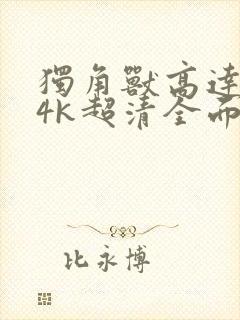 獨角獸高達
4K超清全而
比永博